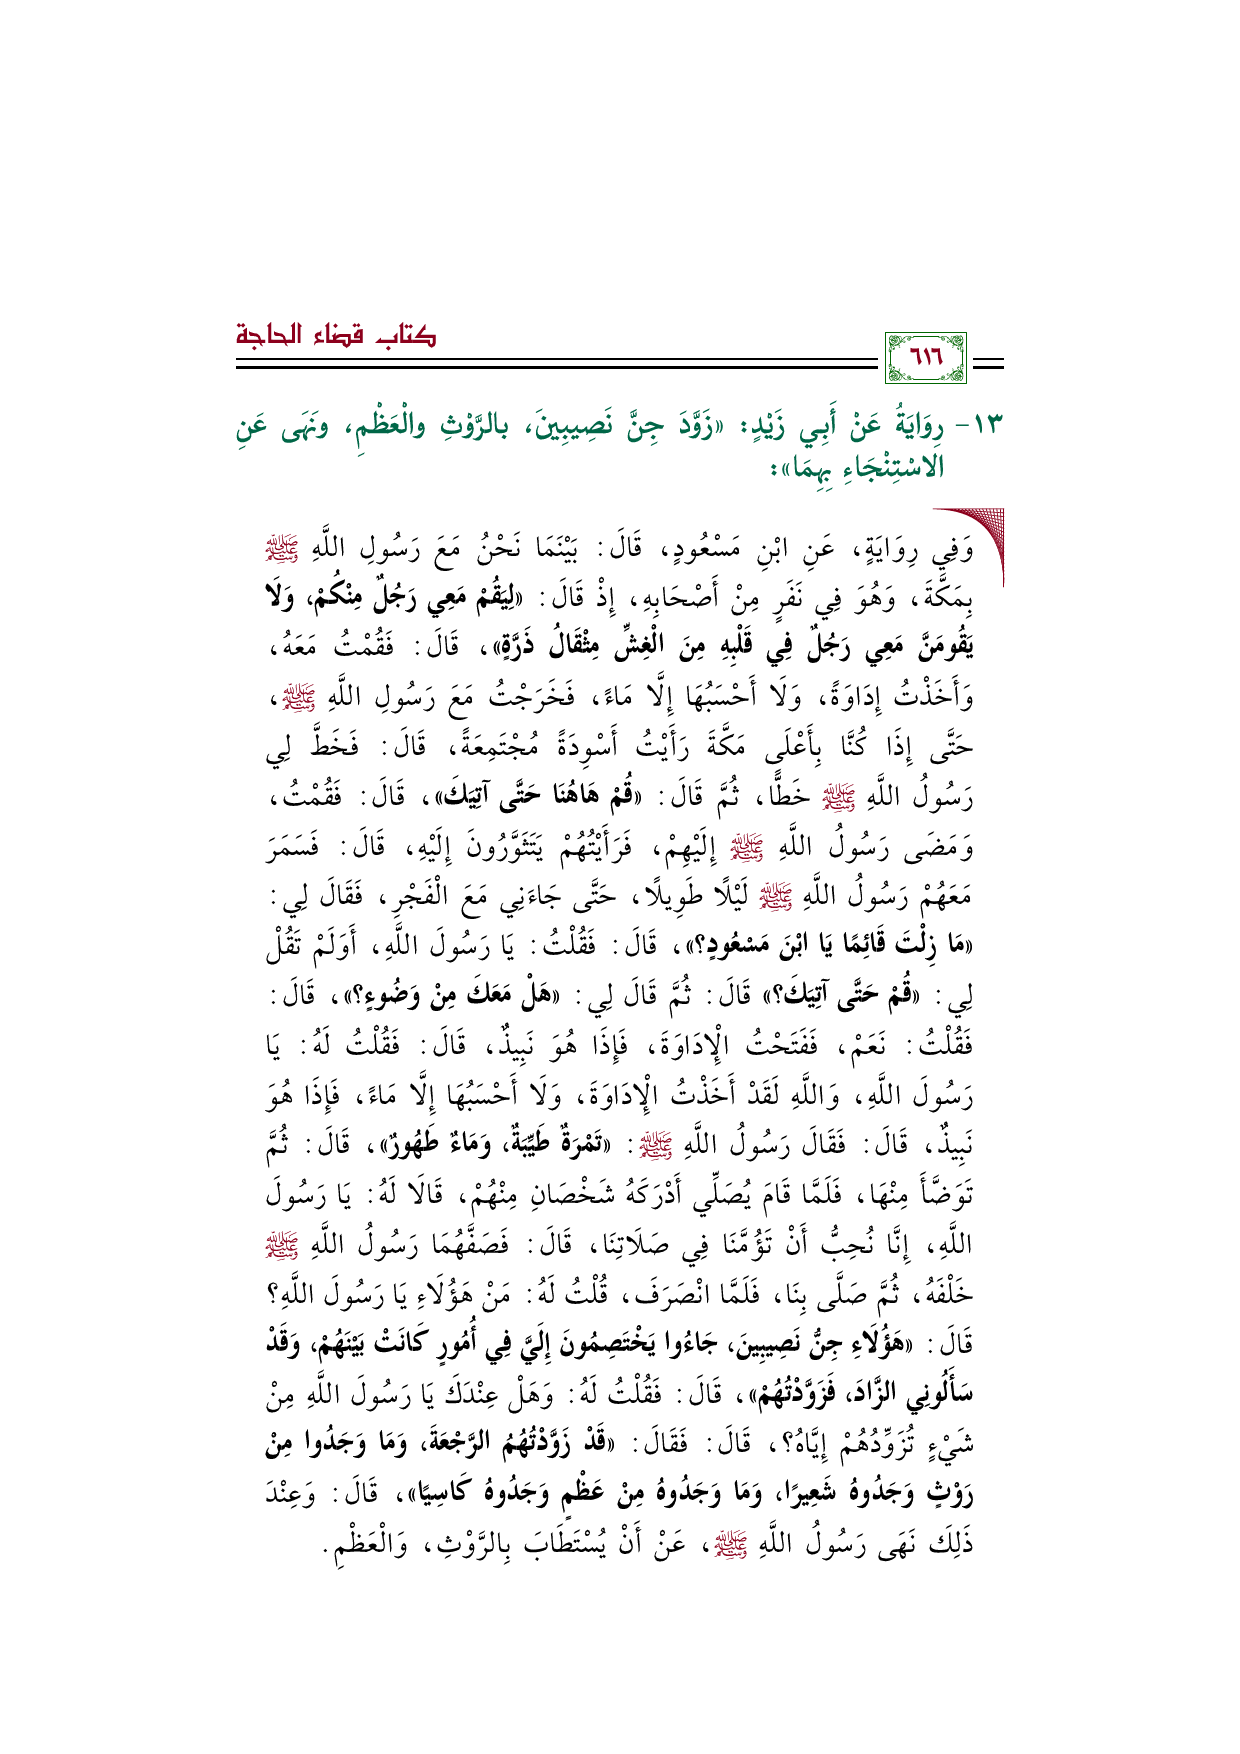 كتاب قضاء الحاجة
٦١٦
١٣- رِوَايَةُ عَنْ أَبِي زَيْدٍ: «زَوَّدَ جِنَّ نَصِيبِينَ، بالرَّوْثِ والْعَظْمِ، ونَهَى عَنِ
الاسْتِنْجَاءِ بِهِمَا»:
وَفِي رِوَايَةٍ، عَنِ ابْنِ مَسْعُودٍ، قَالَ: بَيْنَمَا نَحْنُ مَعَ رَسُولِ اللَّهِ ﷺ
بِمَكَّةَ، وَهُوَ فِي نَفَرٍ مِنْ أَصْحَابِهِ، إِذْ قَالَ: «لِيَقُمْ مَعِي رَجُلٌ مِنْكُمْ، وَلَا
يَقُومَنَّ مَعِي رَجُلٌ فِي قَلْبِهِ مِنَ الْغِشِّ مِثْقَالُ ذَرَّةٍ»، قَالَ: فَقُمْتُ مَعَهُ،
وَأَخَذْتُ إِدَاوَةً، وَلَا أَحْسَبُهَا إِلَّا مَاءً، فَخَرَجْتُ مَعَ رَسُولِ اللَّهِ ﷺ،
حَتَّى إِذَا كُنَّا بِأَعْلَى مَكَّةَ رَأَيْتُ أَسْوِدَةً مُجْتَمِعَةً، قَالَ: فَخَطَّ لِي
رَسُولُ اللَّهِ ﷺ خَطًّا، ثُمَّ قَالَ: «قُمْ هَاهُنَا حَتَّى آتِيَكَ»، قَالَ: فَقُمْتُ،
وَمَضَى رَسُولُ اللَّهِ ﷺ إِلَيْهِمْ، فَرَأَيْتُهُمْ يَتَثَوَّرُونَ إِلَيْهِ، قَالَ: فَسَمَرَ
مَعَهُمْ رَسُولُ اللَّهِ ﷺ لَيْلًا طَوِيلًا، حَتَّى جَاءَنِي مَعَ الْفَجْرِ، فَقَالَ لِي:
«مَا زِلْتَ قَائِمًا يَا ابْنَ مَسْعُودٍ؟»، قَالَ: فَقُلْتُ: يَا رَسُولَ اللَّهِ، أَوَلَمْ تَقُلْ
لِي: «قُمْ حَتَّى آتِيَكَ؟» قَالَ: ثُمَّ قَالَ لِي: «هَلْ مَعَكَ مِنْ وَضُوءٍ؟»، قَالَ:
فَقُلْتُ: نَعَمْ، فَفَتَحْتُ الْإِدَاوَةَ، فَإِذَا هُوَ نَبِيذٌ، قَالَ: فَقُلْتُ لَهُ: يَا
رَسُولَ اللَّهِ، وَاللَّهِ لَقَدْ أَخَذْتُ الْإِدَاوَةَ، وَلَا أَحْسَبُهَا إِلَّا مَاءً، فَإِذَا هُوَ
نَبِيذٌ، قَالَ: فَقَالَ رَسُولُ اللَّهِ ﷺ: «تَمْرَةٌ طَيِّبَةٌ، وَمَاءٌ طَهُورٌ»، قَالَ: ثُمَّ
تَوَضَّأَ مِنْهَا، فَلَمَّا قَامَ يُصَلِّي أَدْرَكَهُ شَخْصَانِ مِنْهُمْ، قَالَا لَهُ: يَا رَسُولَ
اللَّهِ، إِنَّا نُحِبُّ أَنْ تَؤُمَّنَا فِي صَلَاتِنَا، قَالَ: فَصَفَّهُمَا رَسُولُ اللَّهِ ﷺ
خَلْفَهُ، ثُمَّ صَلَّى بِنَا، فَلَمَّا انْصَرَفَ، قُلْتُ لَهُ: مَنْ هَؤُلَاءِ يَا رَسُولَ اللَّهِ؟
قَالَ: «هَؤُلَاءِ جِنُّ نَصِيبِينَ، جَاءُوا يَخْتَصِمُونَ إِلَيَّ فِي أُمُورٍ كَانَتْ بَيْنَهُمْ، وَقَدْ
سَأَلُونِي الزَّادَ، فَزَوَّدْتُهُمْ»، قَالَ: فَقُلْتُ لَهُ: وَهَلْ عِنْدَكَ يَا رَسُولَ اللَّهِ مِنْ
شَيْءٍ تُزَوِّدُهُمْ إِيَّاهُ؟، قَالَ: فَقَالَ: «قَدْ زَوَّدْتُهُمُ الرَّجْعَةَ، وَمَا وَجَدُوا مِنْ
رَوْثٍ وَجَدُوهُ شَعِيرًا، وَمَا وَجَدُوهُ مِنْ عَظْمٍ وَجَدُوهُ كَاسِيًا»، قَالَ: وَعِنْدَ
ذَلِكَ نَهَى رَسُولُ اللَّهِ ﷺ، عَنْ أَنْ يُسْتَطَابَ بِالرَّوْثِ، وَالْعَظْمِ.